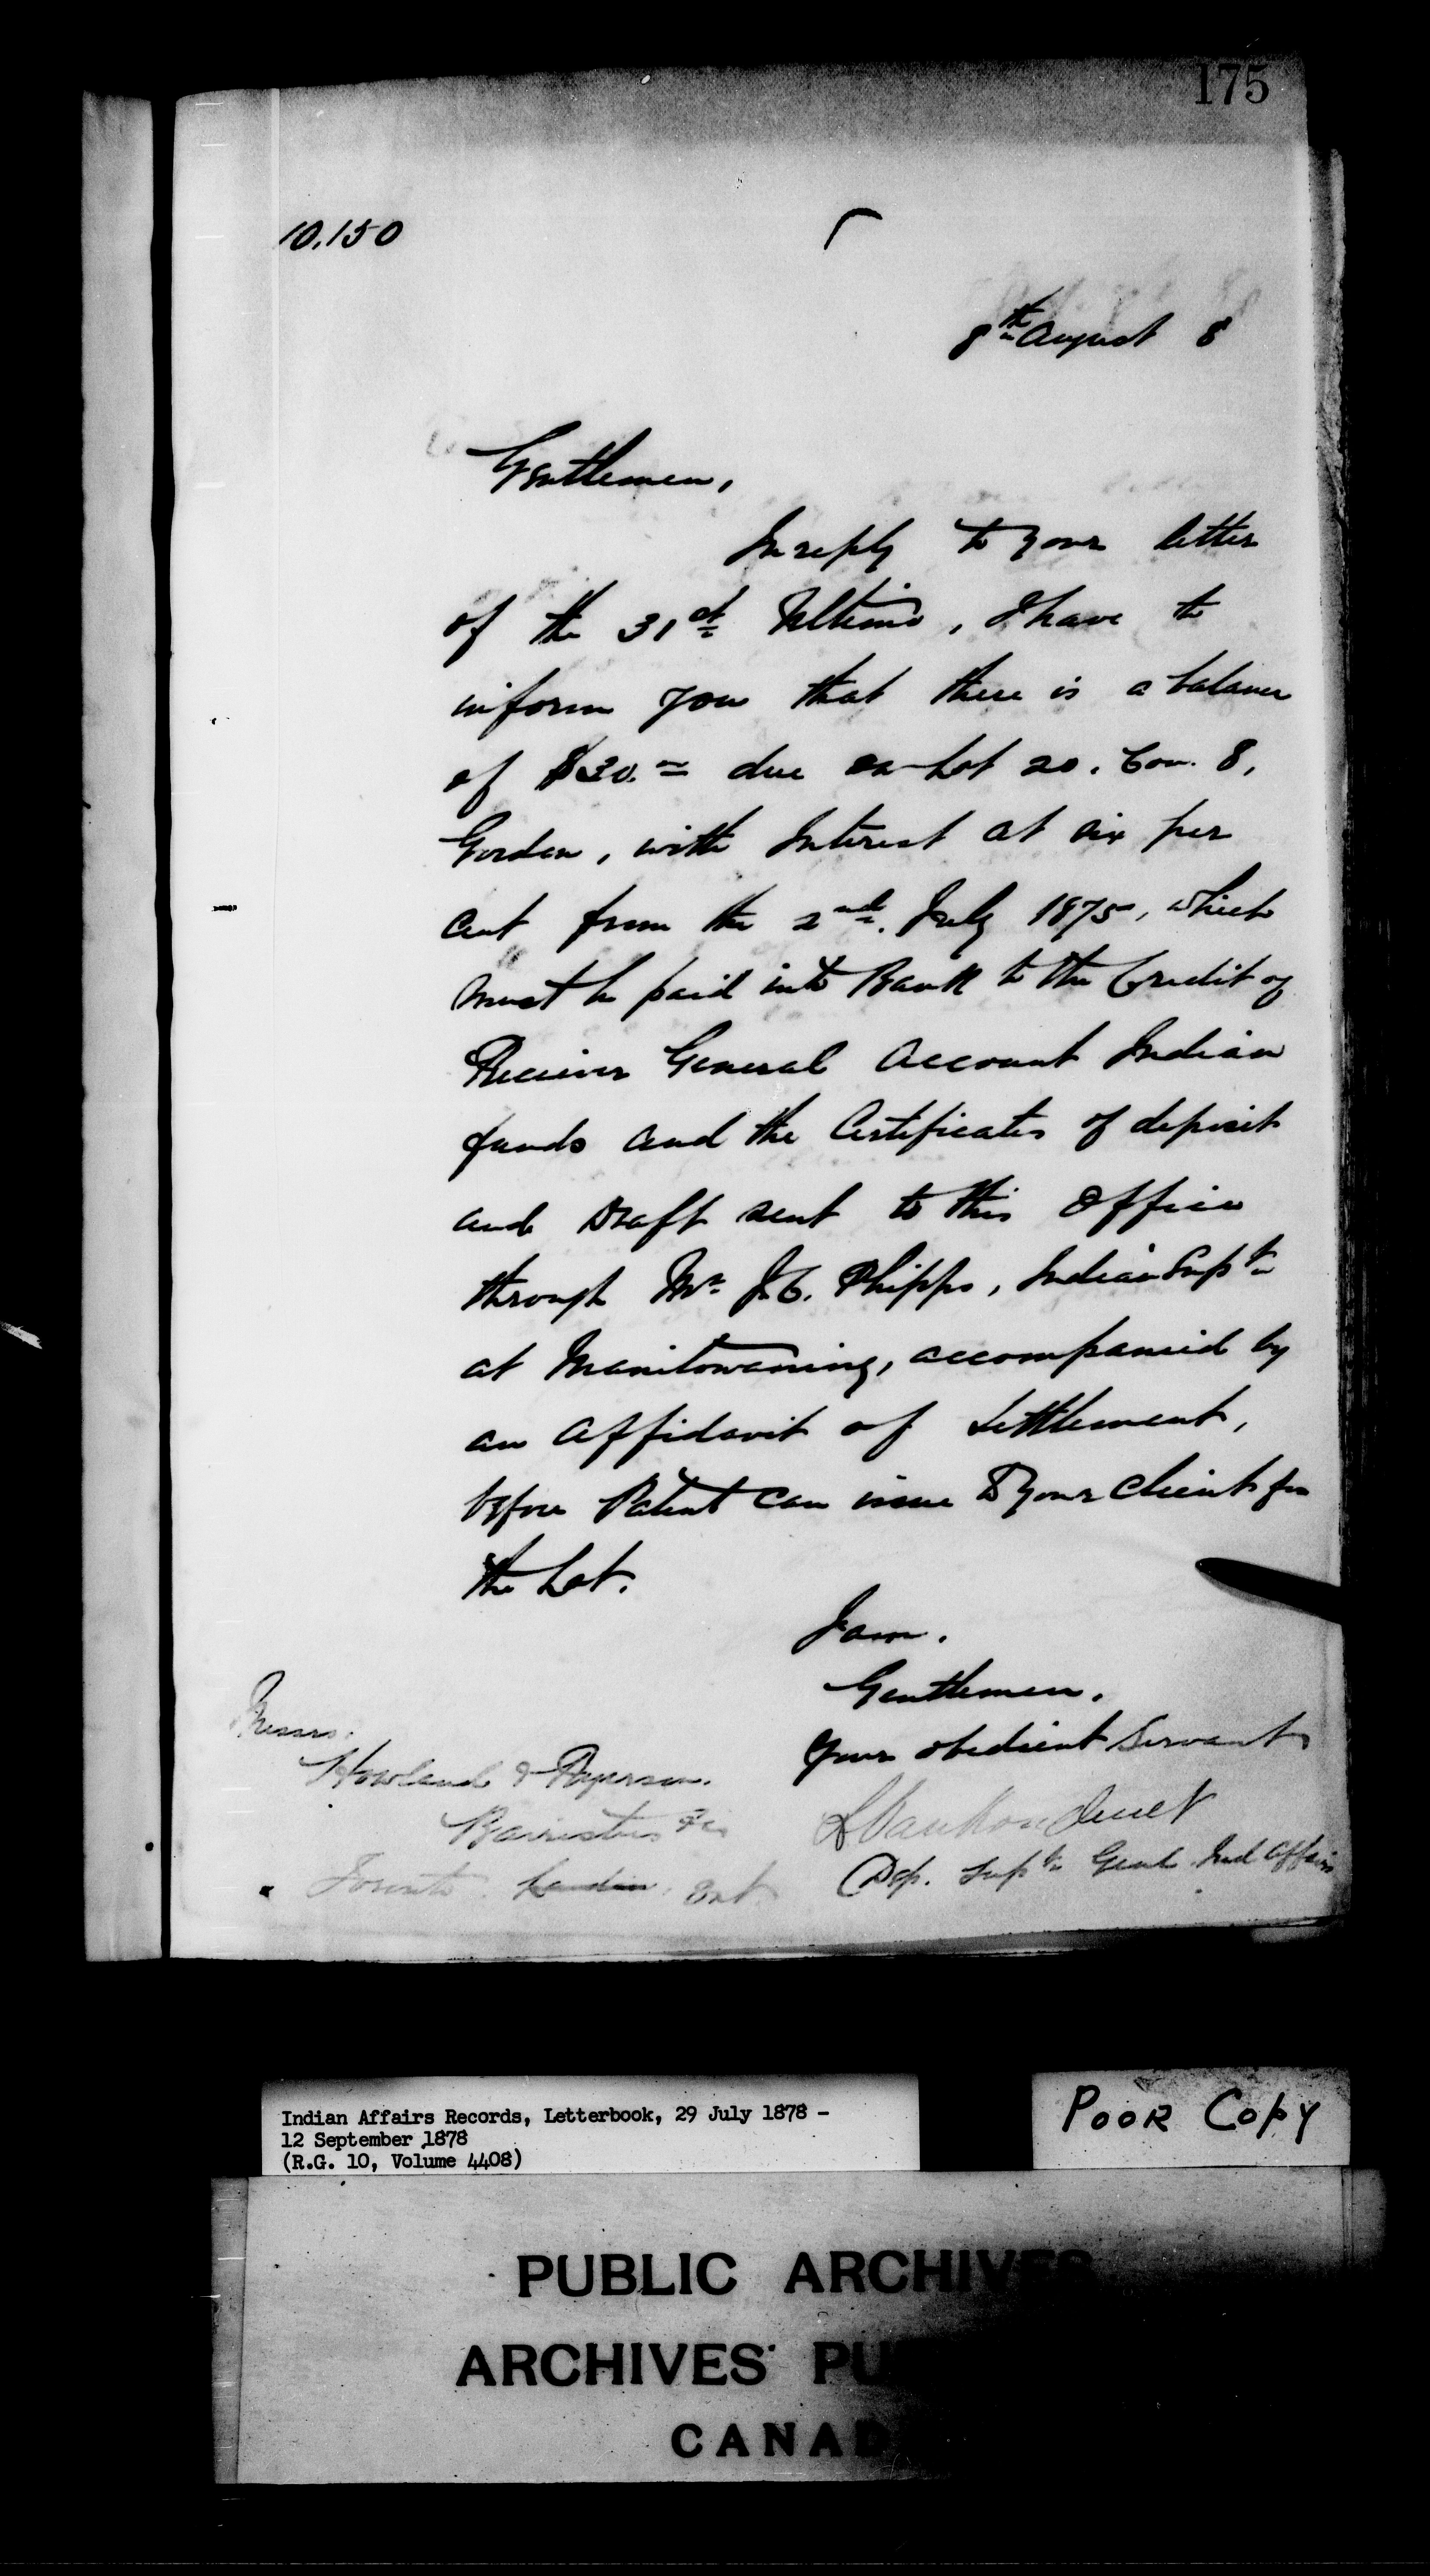 175
10.150
8th August 8
Gentlemen,
In reply to your letter
of the 31st Ultimo, I have to
inform you that there is a balance
of $30.= due on Lot 20. Con. 8,
Gordon, with Interest at six per
cent from the 2nd. July 1875, which
must be paid into Bank to the Credit of
Receiver General Account Indian
funds and the Certificates of deposit
and Draft sent to this Office
through Mr. J.C. Phipps, Indian Supt.
at Manitowaning, accompanied by
an Affidavit of Settlement,
before Patent can issue to your client for
the Lot.
I am.
Gentlemen.
Your obedient Servant
L Vankoughnet
Dep. Supt. Genl. Ind Affairs
Messrs.
Howland & Ryerson.
Barristers &c
Toronto. London. Ont.
Indian Affairs Records, Letterbook, 29 July 1878 -
12 September 1878
(R.G. 10, Volume 4408)
POOR COPY
PUBLIC ARCHIVES
ARCHIVES PU
CANAD